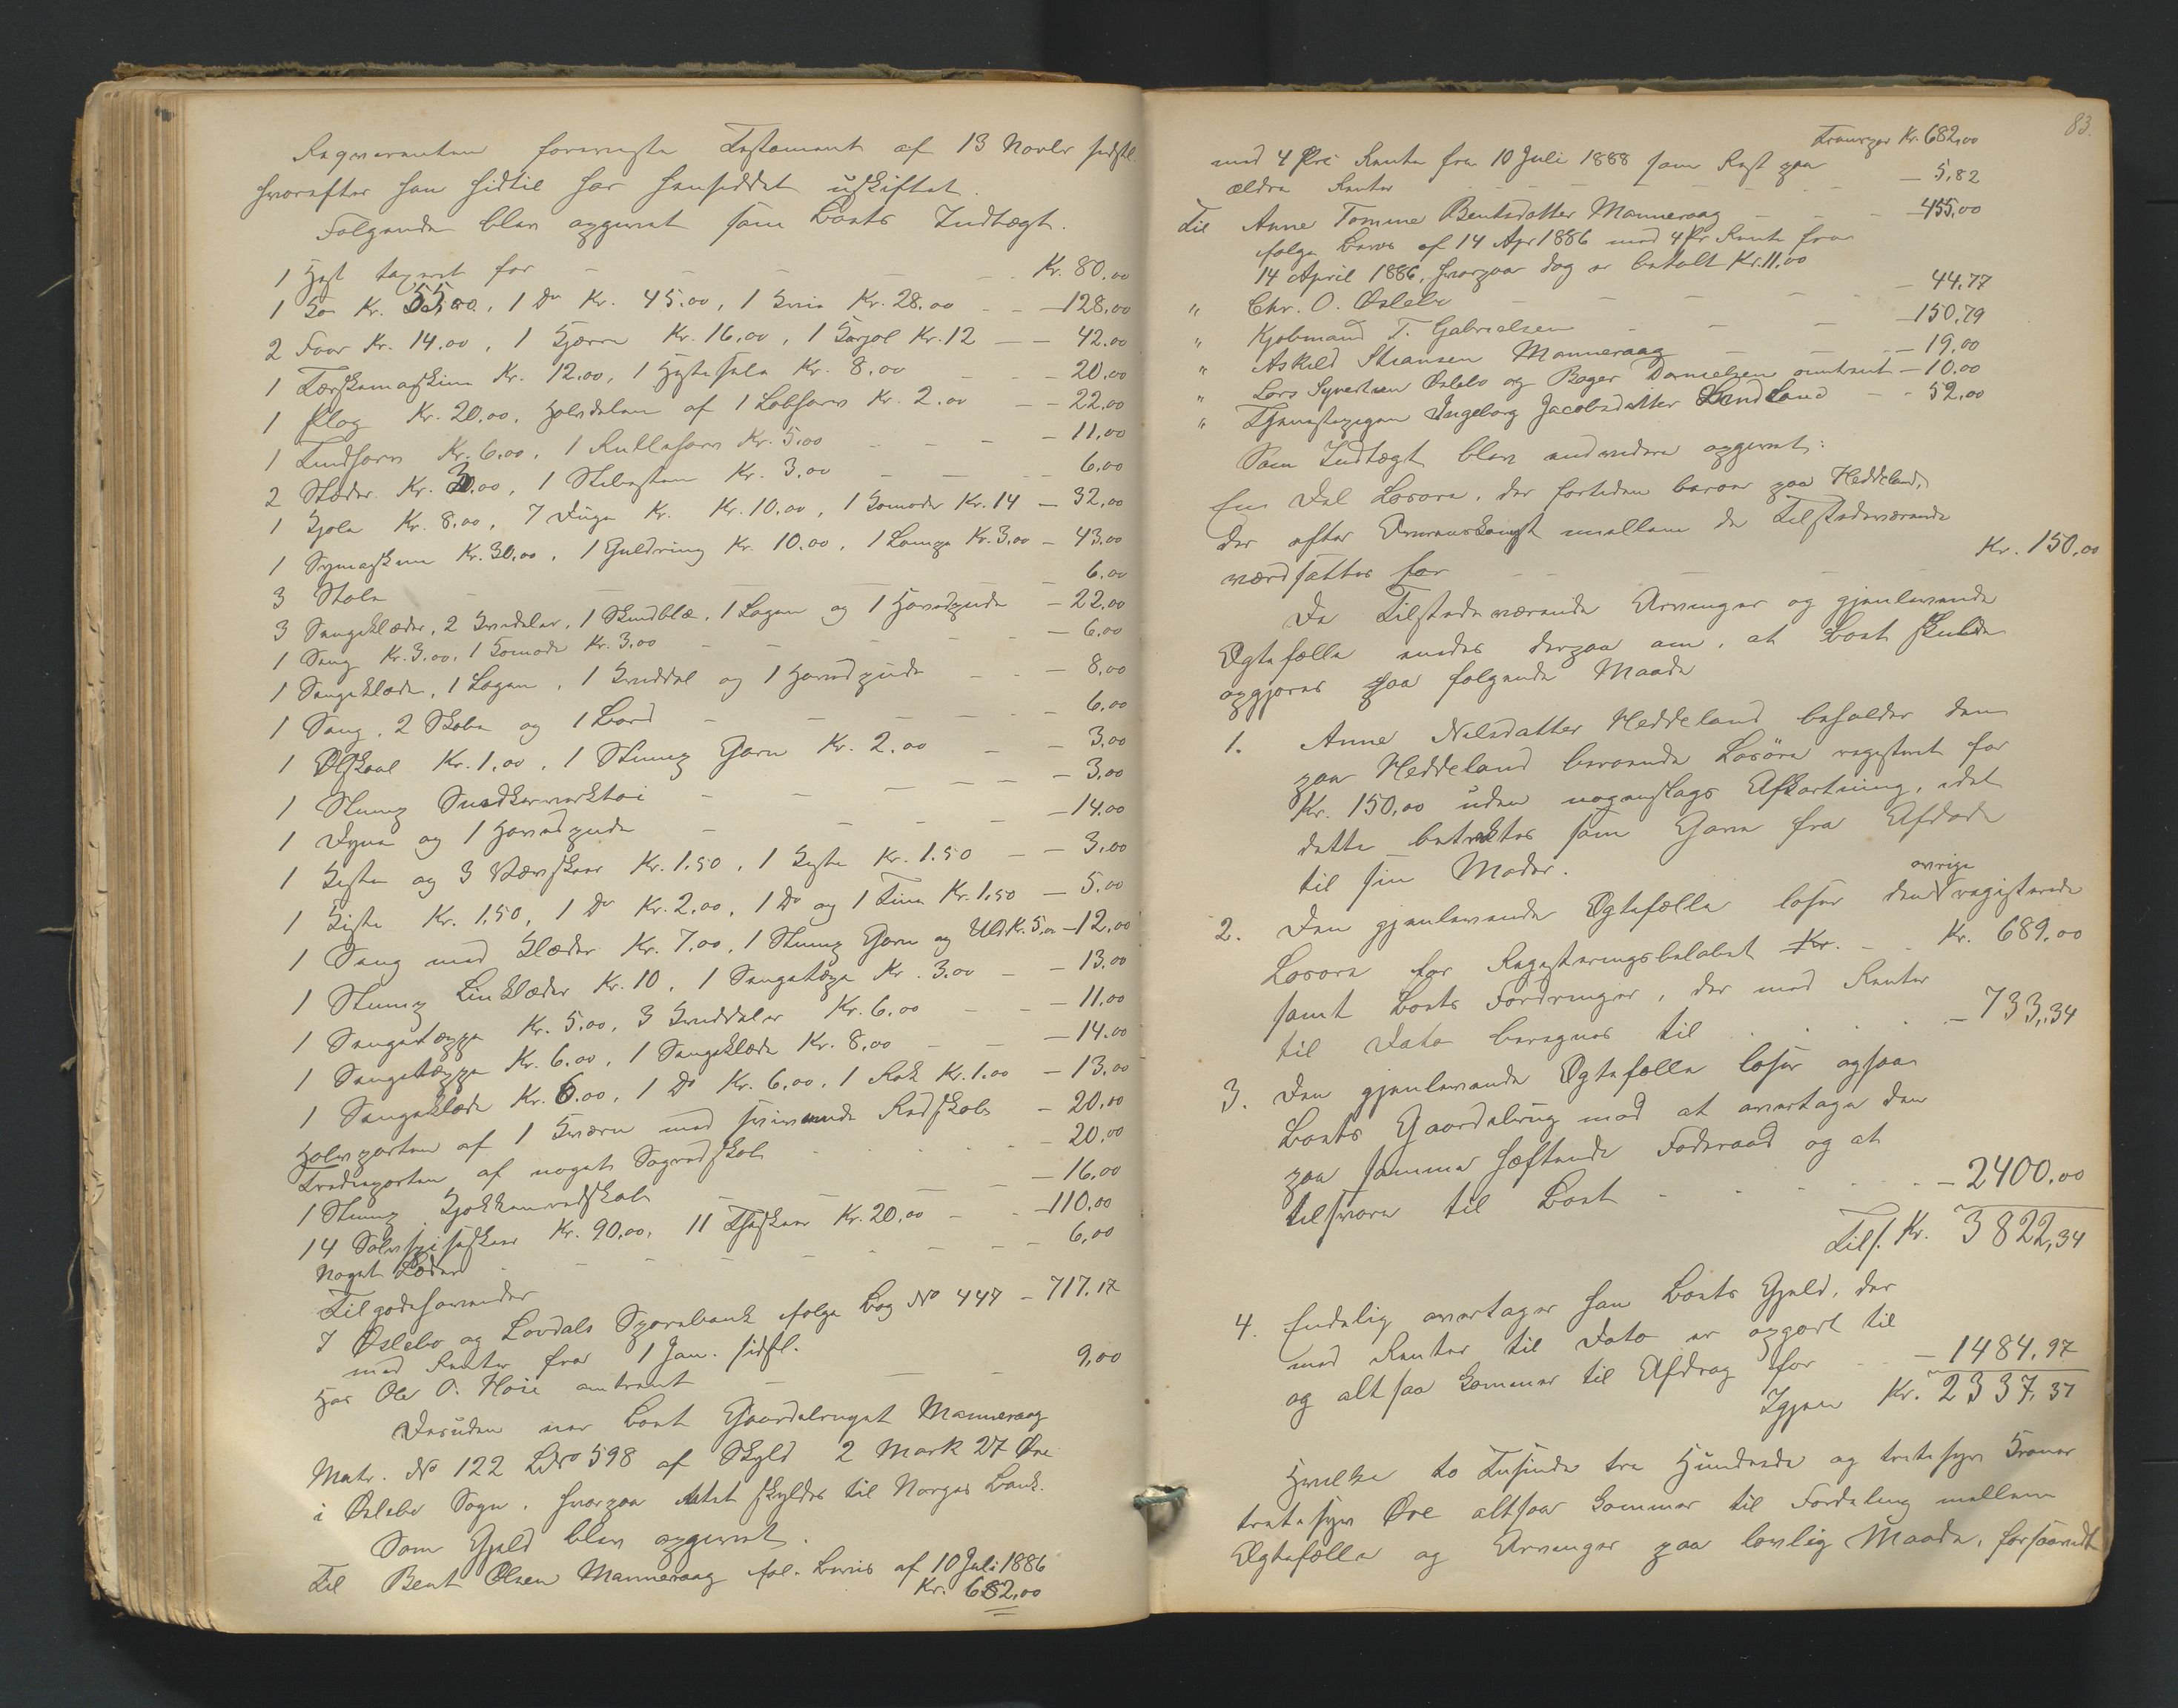 Requirenten foreviste Testament af 13 Novbr sidstl.
hvorefter han hidtil har hensiddet uskiftet.
Følgende blev opgivet som Boets Indtægt.
1 Hest taxeret for - - - - - Kr. 80.00
1 Ko Kr. 55,00, 1 Do Kr. 45.00, 1 Kvie Kr. 28.00 - - 128.00
2 Faar Kr. 14.00, 1 Kjærre Kr. 16.00, 1 Karjol Kr. 12 - - 42.00
1 Tærskemaskine Kr. 12.00, 1 Hestesele Kr. 8.00 - - 20.00
1 Plog Kr. 20.00, Halvdelen af 1 Labharv Kr. 2.00 - - 22.00
1 Tindharv Kr. 6.00, 1 Rulleharv Kr. 5.00 - - - 11.00
2 Slæder Kr. 3.00, 1 Slibesten Kr. 3.00 - - - 6.00
1 Kjole Kr. 8.00, 7 Duge Kr. Kr. 10.00, 1 Komode Kr. 14 - 32,00
1 Symaskine Kr. 30.00, 1 Guldring Kr. 10.00, 1 Lampe Kr. 3,00 - 43.00
3 Stole - - - - - 6.00
3 Sengeklæder, 2 Hvideler, 1 Skindblæ, 1 Lagen og 1 Hovedpude - 22.00
1 Seng Kr. 3.00, 1 Komode Kr. 3.00 - - - 6.00
1 Sengeklæde, 1 Lagen, 1 Hviddel og 1 Hovedpude - - 8,00
1 Seng, 2 Skabe og 1 Bord - - - - 6.00
1 Ølskaal Kr. 1.00, 1 Slump Garn Kr. 2.00 - - 3.00
1 Slump Snedkerverktøi - - - - 3.00
1 Dyne og 1 Hovedpude - - - - 14.00
1 Kiste og 3 Vævskeer Kr. 1.50, 1 Kiste Kr. 1.50 - - 3.00
1 Kiste Kr. 1.50, 1 Do Kr. 2.00, 1 Do og 1 Tine Kr. 1.50 - 5.00
1 Seng med Klæder Kr. 7.00, 1 Slump Garn og Uld K. 5,00 - 12.00
1 Slump Linklæder Kr. 10, 1 Sengetæppe Kr. 3.00 - - 13.00
1 Sengetæppe Kr. 5.00, 3 Hviddeler Kr. 6.00 - - 11.00
1 Sengetæppe Kr. 6.00, 1 Sengeklæde Kr. 8.00 - - 14.00
1 Sengeklæde Kr. 6.00, 1 Do Kr. 6.00, 1 Rok Kr. 1.00 - 13.00
Halvparten af 1 Kværn med Redskab - 20.00
Trediparten af noget Sagredskab - - - 20.00
1 Slump Kjøkkenredskab - - - - 16.00
14 Sølvspiseskeer Kr. 90.00, 11 Theskeer Kr. 20.00 - - 110.00
Noget Læder - - - - - 6,00
Tilgodehavender
I Øslebø og Løvdals Sparebank ifølge Bog No 447 - 717.17
med Renter fra 1 Jan. sidstl.
Hos Ole O. Høie omtrent - - - 9,00
Desuden eier Boet Gaardsbruget Manneraag
Matr. No 122 LNo 598 af Skyld 2 Mark 27 Øre
i Øslebø Sogn, hvorpaa intet skyldes til Norges Bank.
Som Gjeld blev opgivet.
Til Bent Olsen Manneraag føl. Bevis af 10 Juli 1886
Kr. 682,00
83.
Transport Kr. 682,00
med 4 Pro. Rente fra 10 Juli 1888 som Rest paa
ældre Renter - - - - - 5,82
Til Anne Tomine Bentsdatter Manneraag - - - 455,00
følge Bevis af 14 Apr 1886 med 4 Pr Rente fra
14 April 1886, hvorpaa dog er betalt Kr. 11.00
" Chr. O. Øslebø - - - - 44,77
" Kjøbmand T. Gabrielsen - - - 150,79
" Askild Stiansen Manneraag - - - 19.00
" Lars Syvertsen Øslebø og Danielsen omtrent - 10.00
" Tjenestepigen Ingeborg Jacobsdatter Lindland - - 52,00
Som Indtægt blev endvidere opgivet:
En Del Løsøre, der fortiden beroer paa Heddeland,
der efter Overenskomst mellem de Tilstedeværende
værdsattes for - - - - Kr. 150.00
De Tilstedeværende Arvinger og gjenlevende
Ægtefælle enedes derpaa om, at Boet skulde
opgjøres paa følgende Maade
1. Anne Nilsdatter Heddeland beholder den
paa Heddeland beroende Løsöre registreret for
Kr. 150.00 uden nogenslags Afkortning, idet
dette betragtes som Gave fra Afdøde
til sin Moder.
2. Den gjenlevende Ægtefælle løser den øvrige registrerede
Løsøre for Registreringsbeløbet Kr. - - Kr. 689.00
samt Boets Fordringer, der med Renter
til Dato beregnes til . . . - 733,34
3. Den gjenlevende Ægtefælle løser ogsaa
Boets Gaardsbrug mod at overtage den
paa samme hæftende Føderaad og at
tilsvare til Boet - - - - 2400.00
Tils. Kr. 3822,34
4. Endelig overtager han Boets Gjeld, der
med Renter til Dato er opgjort til
og altsaa kommer til Afdrag for - - 1484,97
Igjen Kr. 2337,37
Hvilke to Tusinde tre Hundrede og tretisyv Kroner
tretisyv Øre altsaa kommer til Fordeling mellem
Ægtefælle og Arvinger paa lovlig Maade, forsaavidt